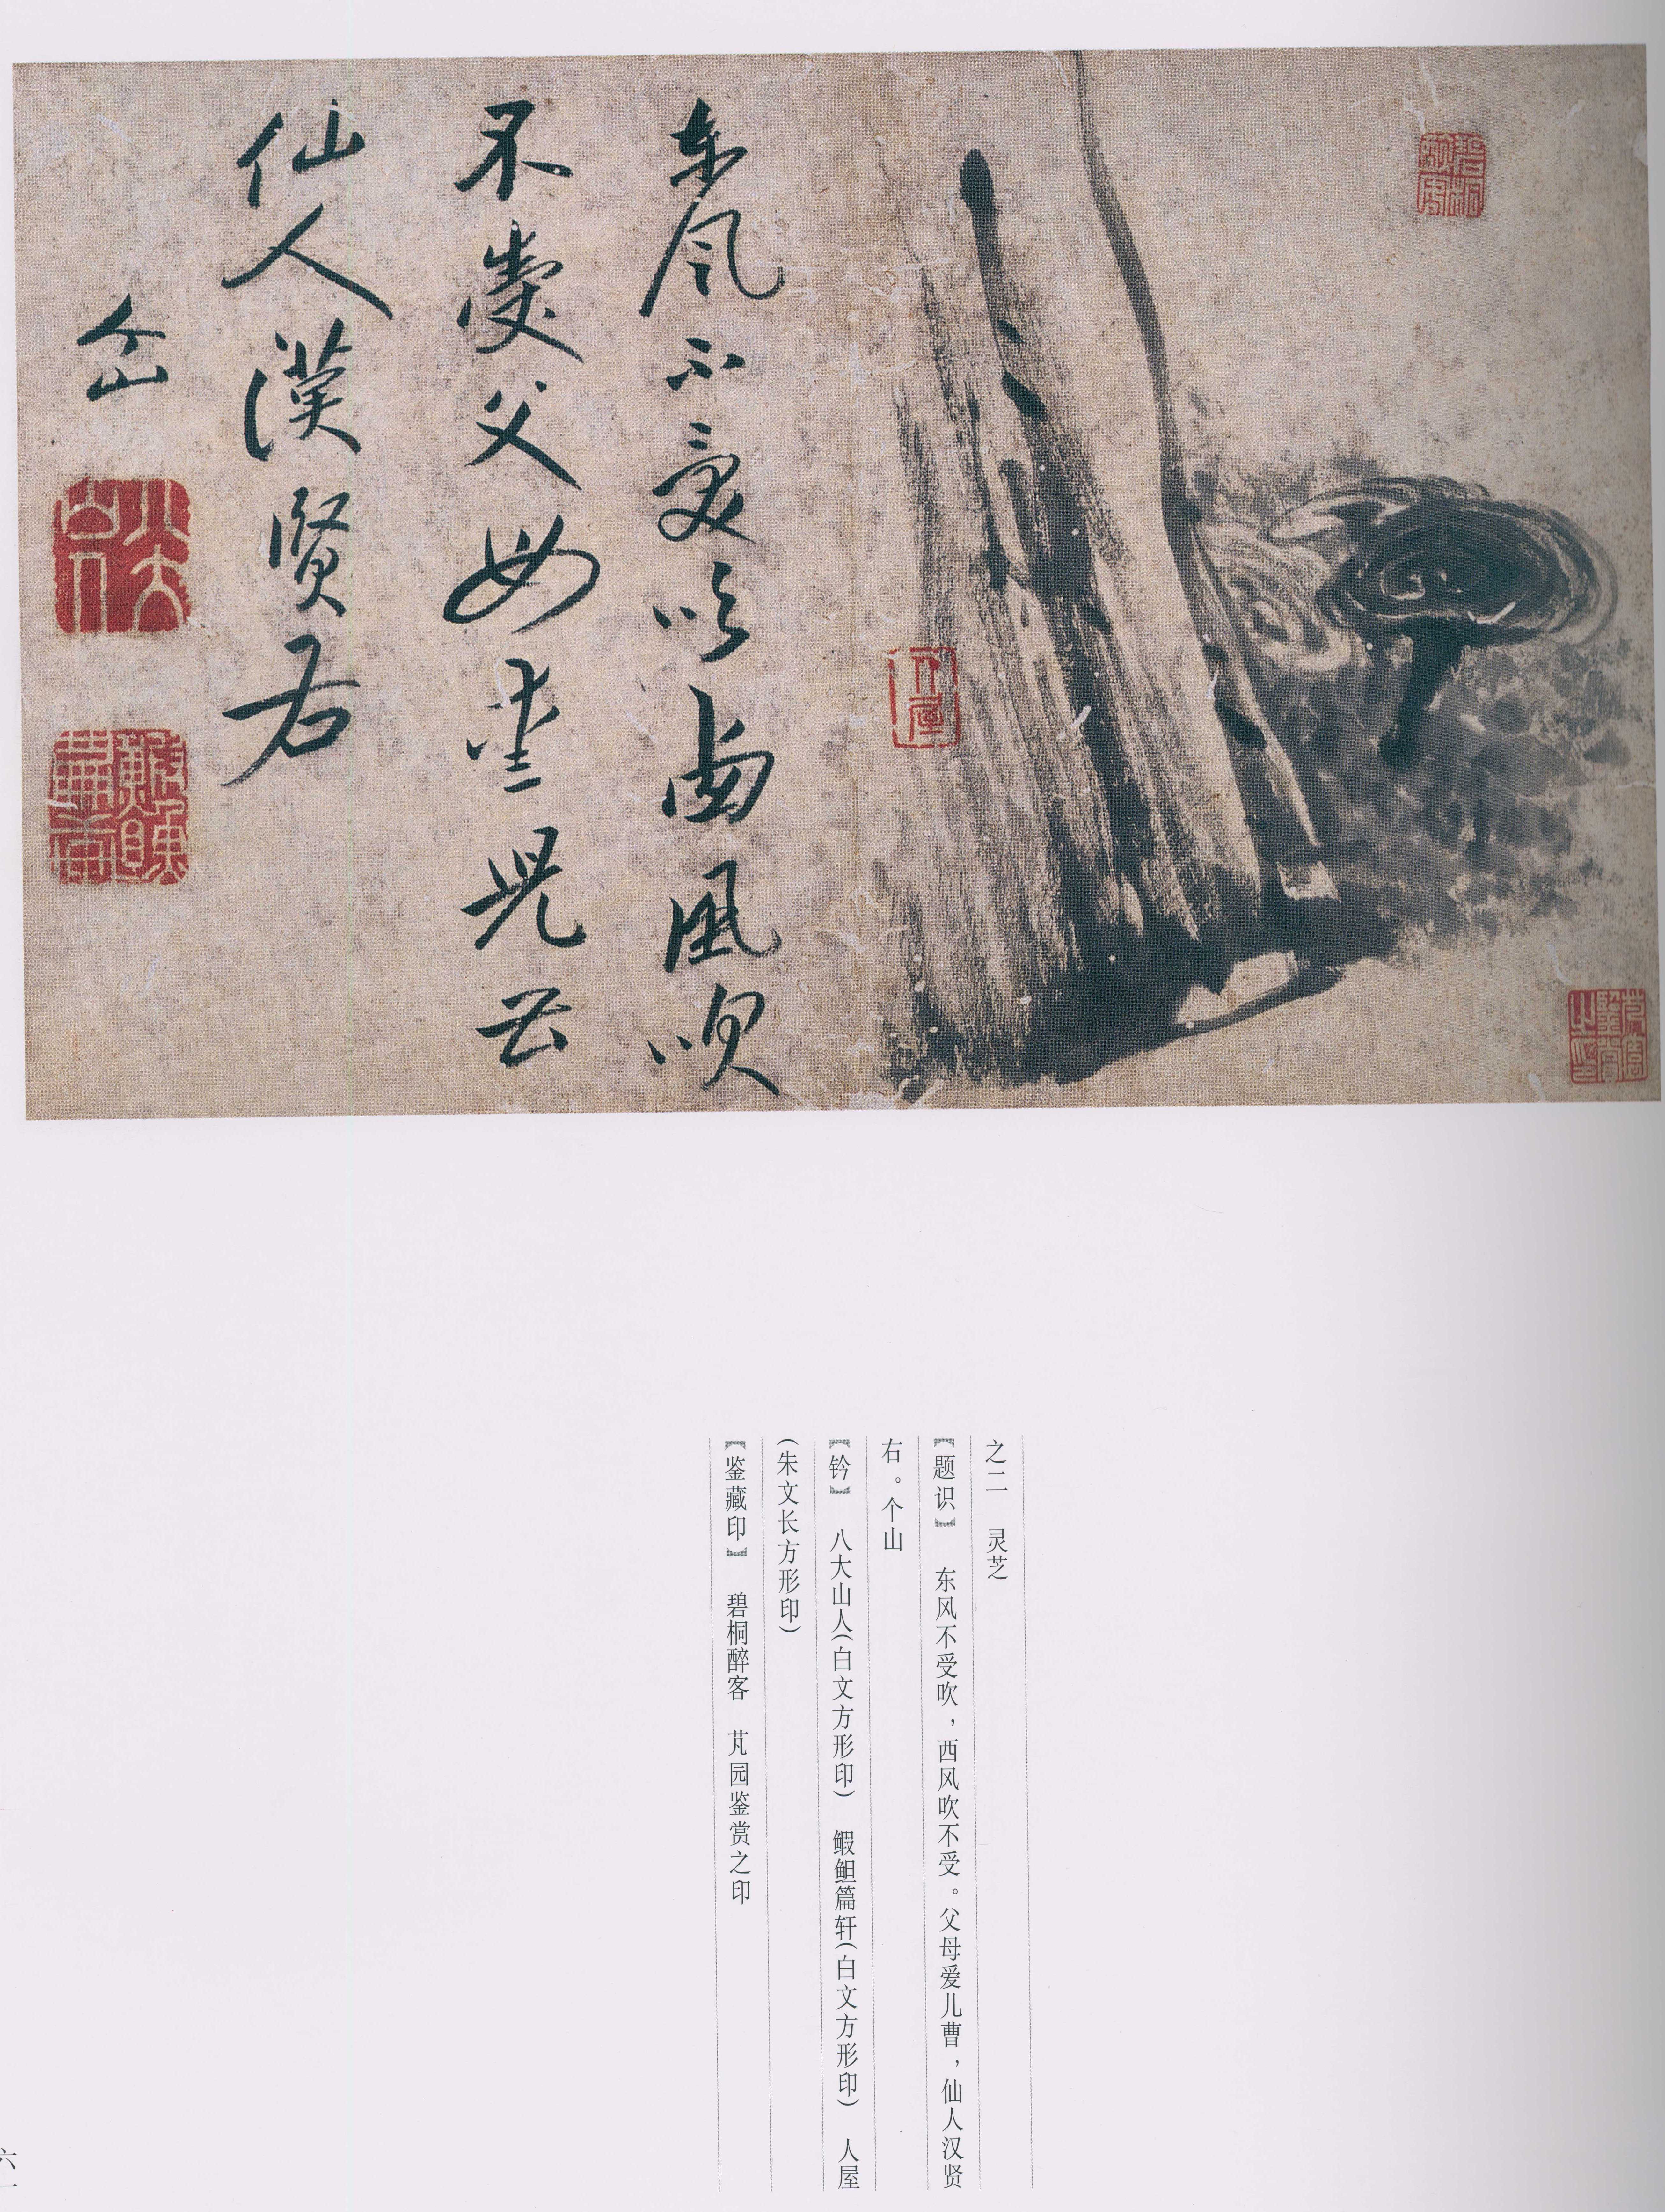 碧桐
人屋
东风不受吹西風吹
不受父母兒
仙人漢賢右
个山
八大山人
之二 灵芝
【题识】 东风不受吹，西风吹不受。父母爱儿曹，仙人汉贤
右。个山
【钤】 八大山人(白文方形印) 鰕䱇篇轩(白文方形印) 人屋
(朱文长方形印)
【鉴藏印】 碧桐醉客 芃园鉴赏之印
六一